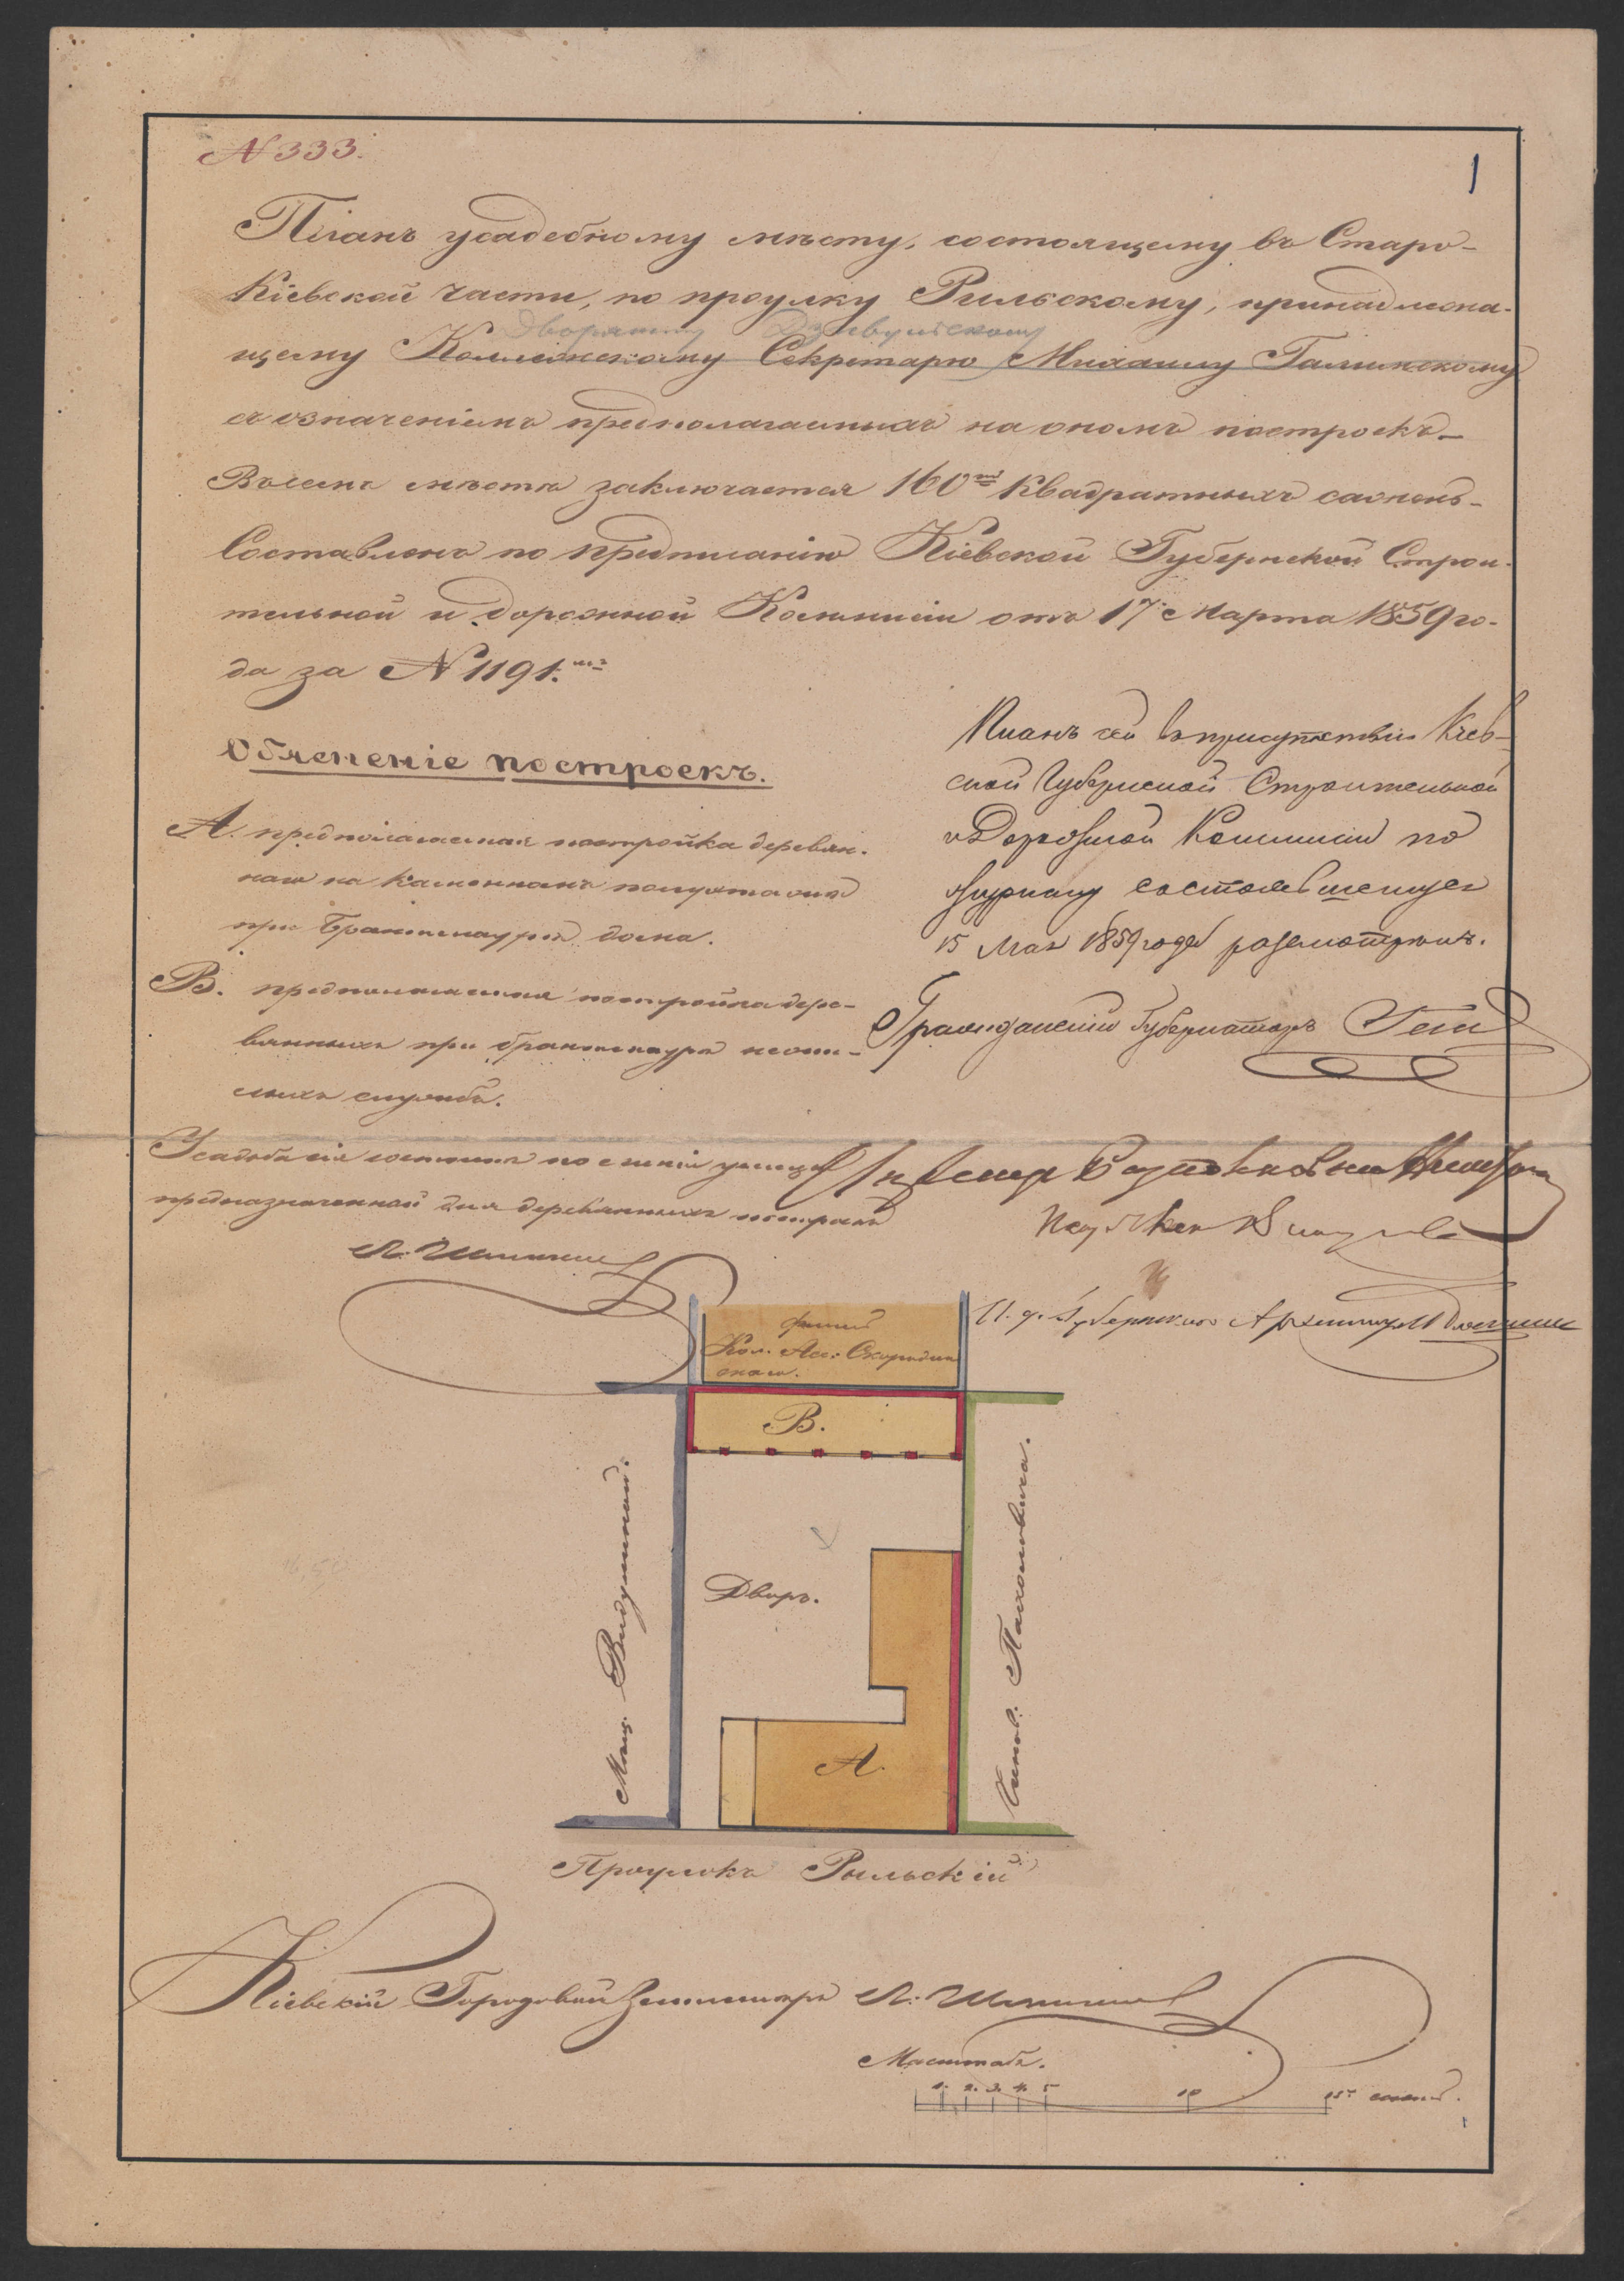 N 333.
1
Планъ усадебному мѣсту, состоящему въ Старо-
Кіевской части, по проулку Рыльскому, принадлежа-
Дворянину
щему Коллежскому Секретарю Михаилу
съ означеніемъ предполагаемыхъ на ономъ построекъ
Всего мѣста заключается 160 квадратныхъ сажень
Составленъ по предписанію Кіевской Губернской Строи-
тельной и дорожной Коммисіи отъ 17 Марта 1859 го-
да за N 1191.
Обясненіе построекъ.
А. предполагаемая постройка деревян-
наго на каменномъ полуэтажѣ
при брантмаурѣ дома.
В. предполагаемая постройка дере-
вянныхъ при брантмаурѣ нежи-
лыхъ службъ.
Усадьба сія состоитъ по линіи улицы
предназначенной для деревянныхъ построекъ
Планъ сей въ присутствіи Кіев-
ской Губернской Строительной
и Дорожной Коммисіи по
журналу состоявшемуся
15 Мая 1859 года разсмотрѣнъ.
Гражданскій Губернаторъ
Губернскаго
Кол. Асс.
В.
Дворъ.
А.
Мѣщ.
Чинов. Пахоловича.
Проулокъ Рыльскій
Кіевскій Городовой Землемѣръ
Масштабъ.
1. 2. 3. 4. 5 10 15 сажень.